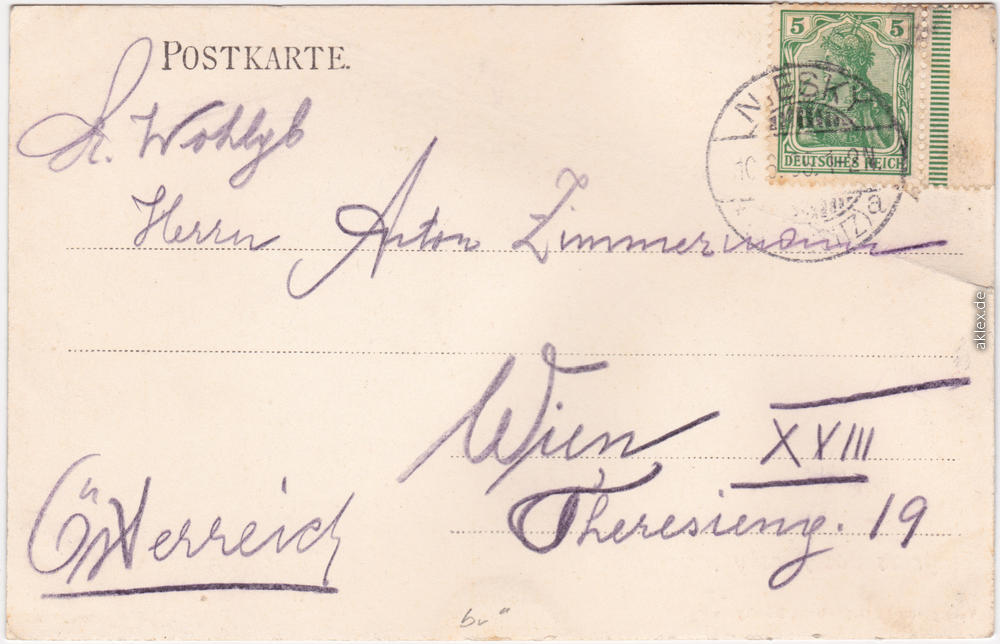 POSTKARTE.
5 5
DEUTSCHES REICH
NIESKY
1-2N.
a
Sr. Wohlgb
Herrn Anton Zimmermann
Wien XVIII
Theresieng. 19
Österreich
aklex.de